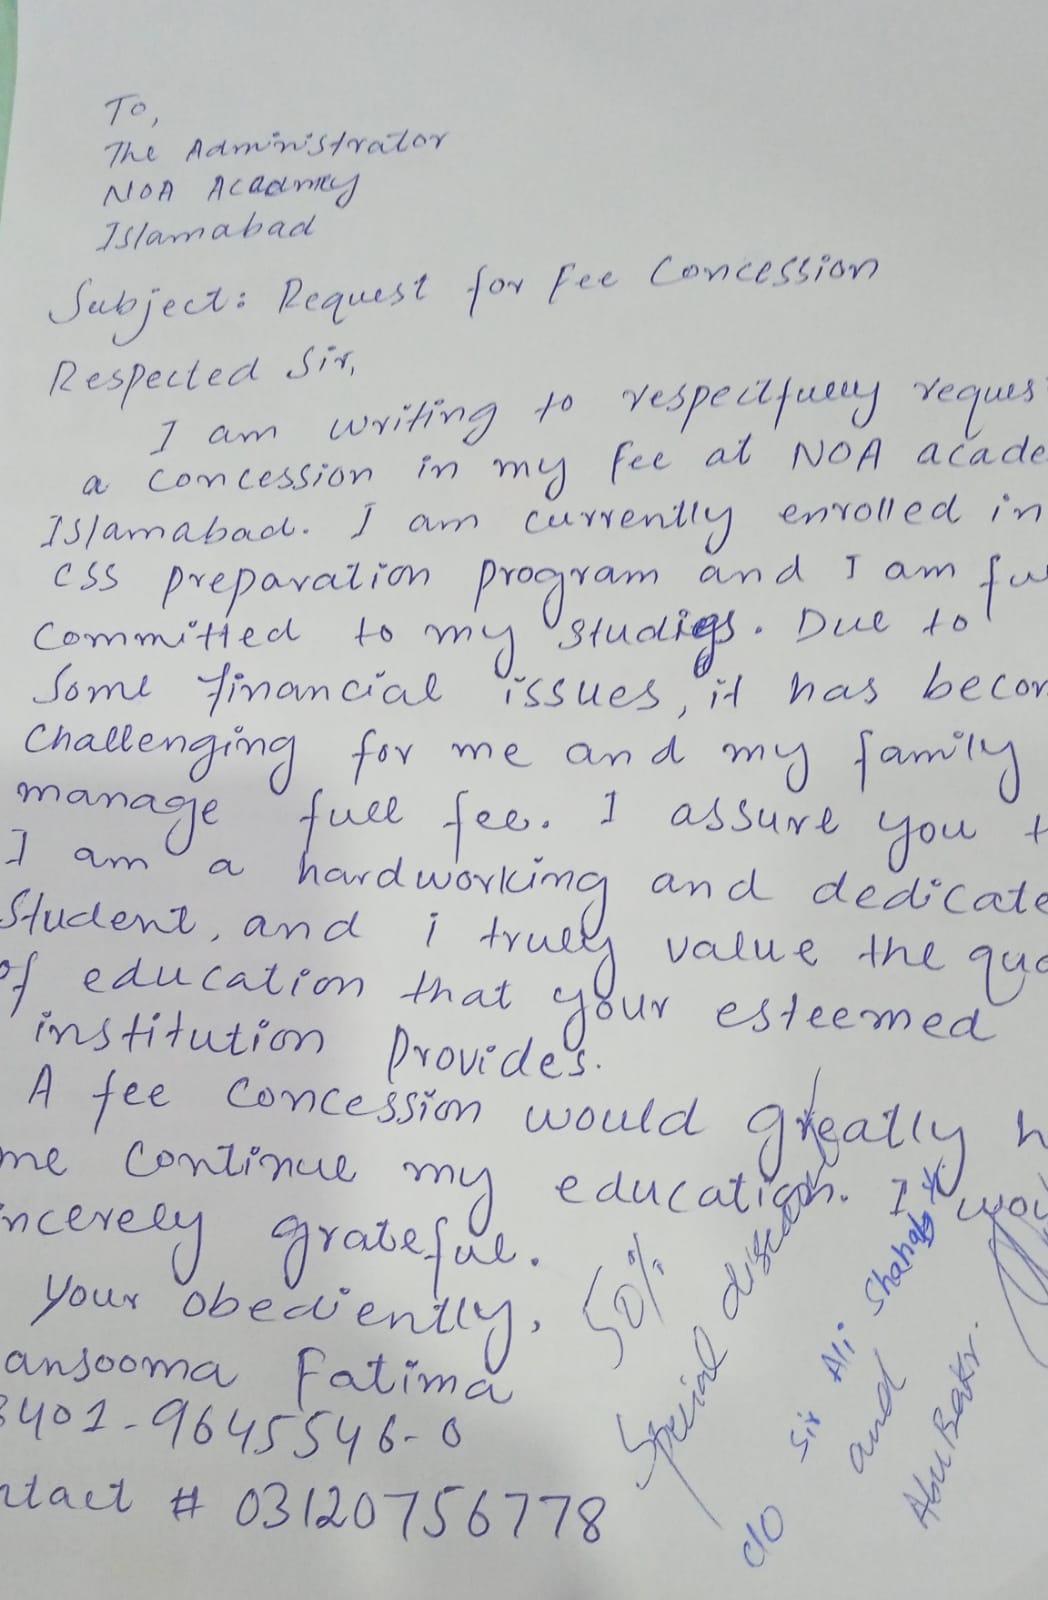 To,
The Administrator
NOA Acadmey
Islamabad
Subject: Request for Fee Concession
Respected Sir,
I am writing to respectfully reques
a concession in my fee at NOA acade
Islamabad. I am currently enrolled in
CSS preparation program and I am fu
committed to my studies. Due to
Some financial issues, it has becom
Challenging for me and my family
manage full fee. I assure you t
I am a hardworking and dedicate
Student, and i truly value the qua
of education that your esteemed
institution Provides.
A fee concession would greatly h
me continue my education. I wou
incerely grateful.
Your obediently,
ansooma Fatima
3401-9645546-0
ntact # 03120756778
50%
Special discount
c/o Sir Ali Shahab
and
Abu Bakr.